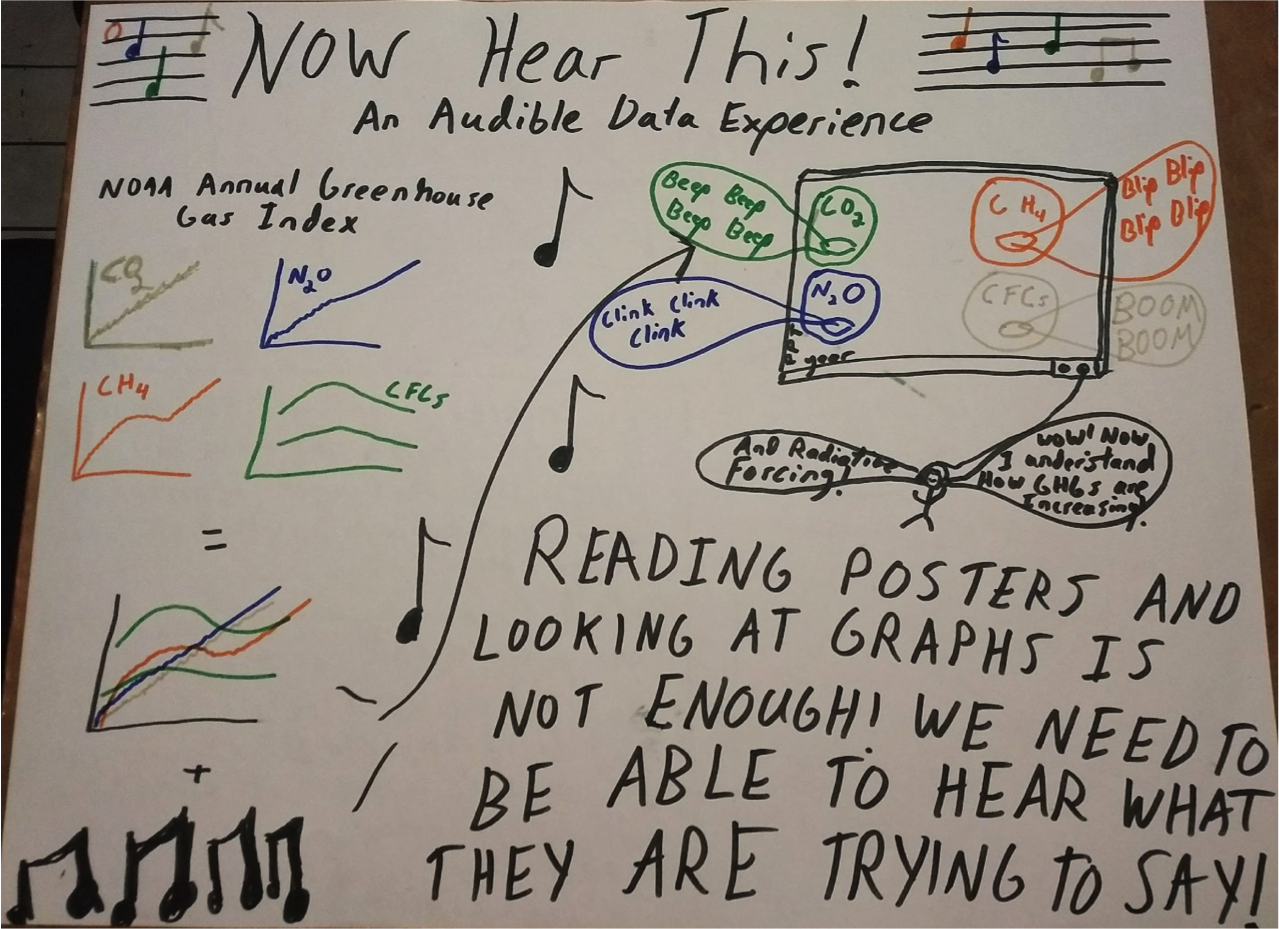 NOW Hear This!
An Audible Data Experience
NOAA Annual Greenhouse
Gas Index
CO2
N2O
CH4
CFCs
=
+
Beep Beep
Beep Beep
CO2
CH4
Blip Blip
Blip Blip
Clink Clink
Clink
N2O
CFCs
BOOM
BOOM
year
And Radiative
Forcing!
WOW! Now
I understand
How GHGs are
Increasing!
READING POSTERS AND
LOOKING AT GRAPHS IS
NOT ENOUGH! WE NEED TO
BE ABLE TO HEAR WHAT
THEY ARE TRYING TO SAY!